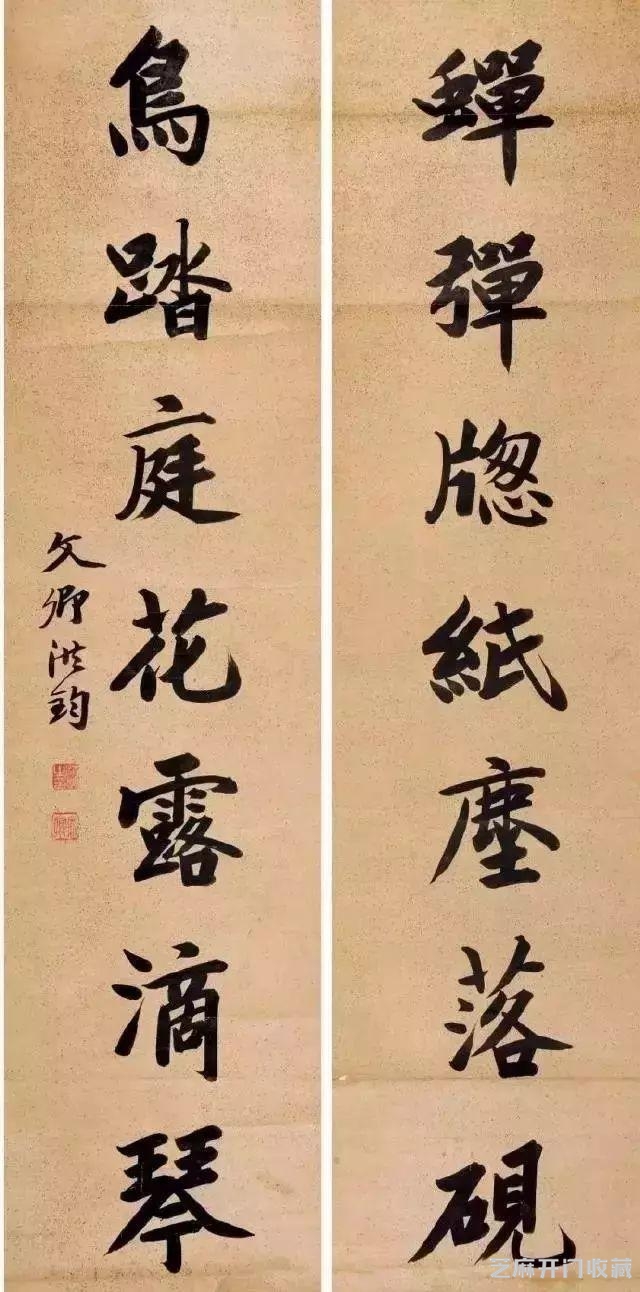 蟬彈牕紙塵落硯
鳥踏庭花露滴琴
文卿洪鈞
芝麻开门收藏